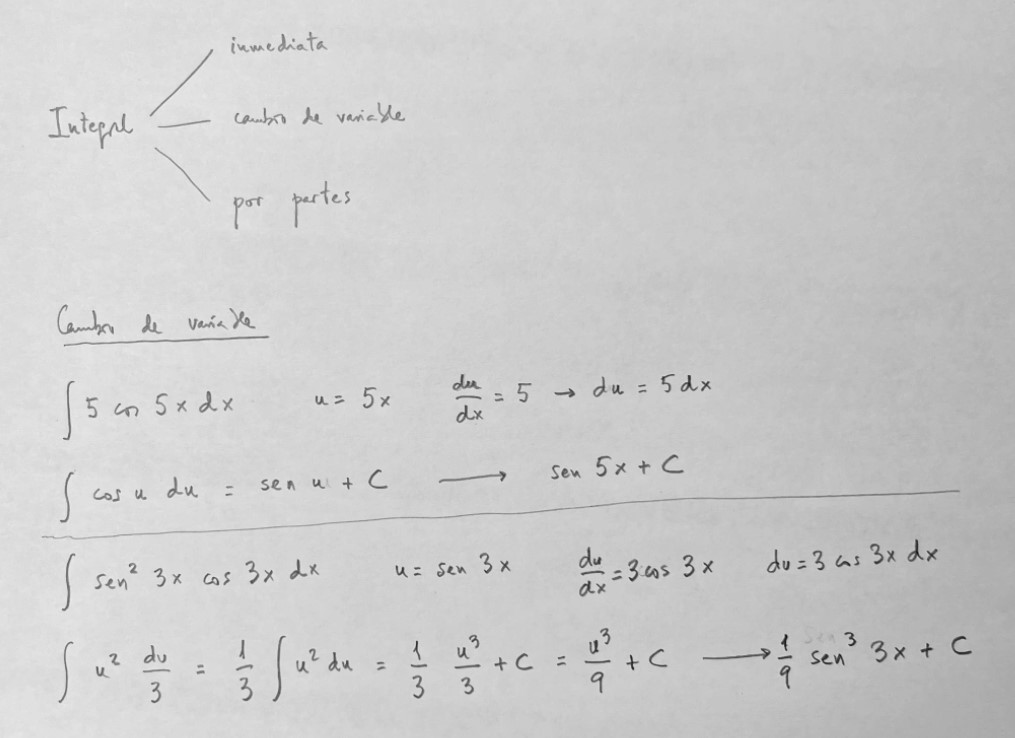 inmediata
Integral
cambio de variable
por partes
Cambio de variable
∫ 5 cos 5x dx u = 5x du/dx = 5 → du = 5 dx
∫ cos u du = sen u + C → sen 5x + C
∫ sen² 3x cos 3x dx u = sen 3x du/dx = 3·cos 3x du = 3 cos 3x dx
∫ u² du/3 = 1/3 ∫ u² du = 1/3 u³/3 + C = u³/9 + C → 1/9 sen³ 3x + C